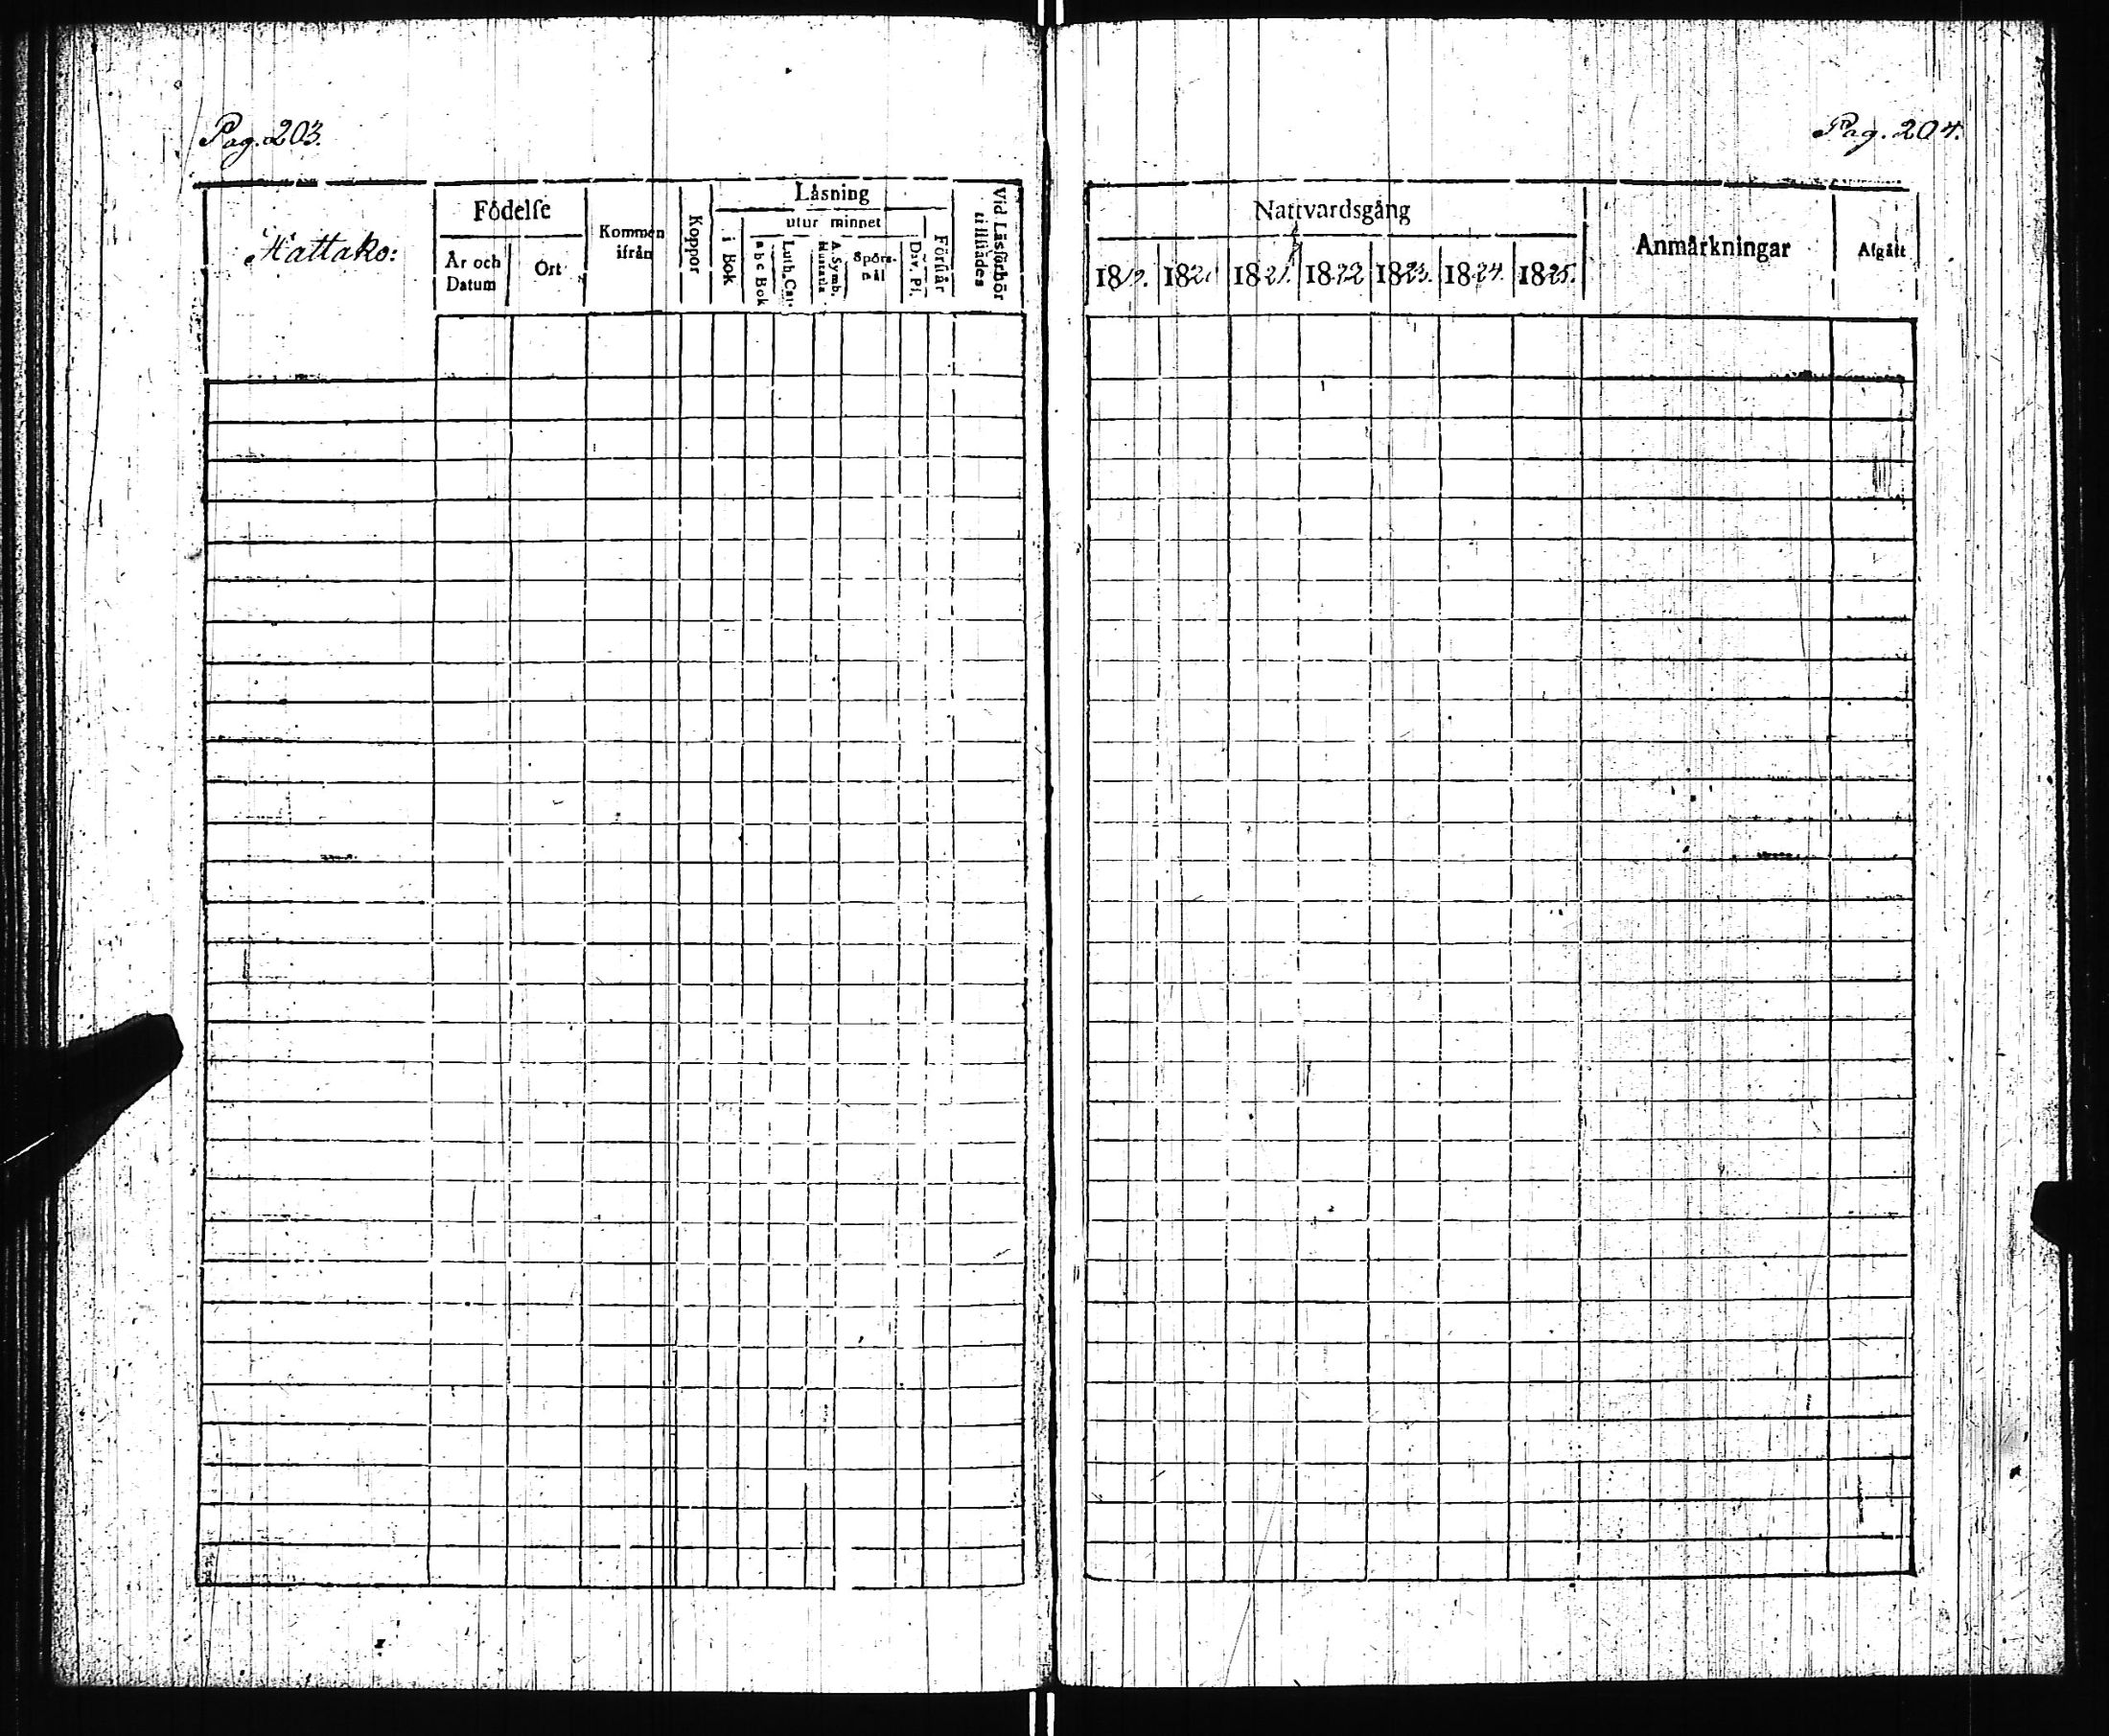 Pag. 203.
Hattako:
Födelse
År och Datum
Ort
Kommen ifrån
Koppor
Läsning
i Bok
utur minnet
abc Bok
Luth. Cat.
A. Symb. Hustafla
Spörsmål
Dav. Ps.
Förstår
Vid Läsförhör tillstädes
Pag. 204.
Nattvardsgång
1819. 1820 1821. 1822 1823. 1824. 1825.
Anmärkningar
Afgått